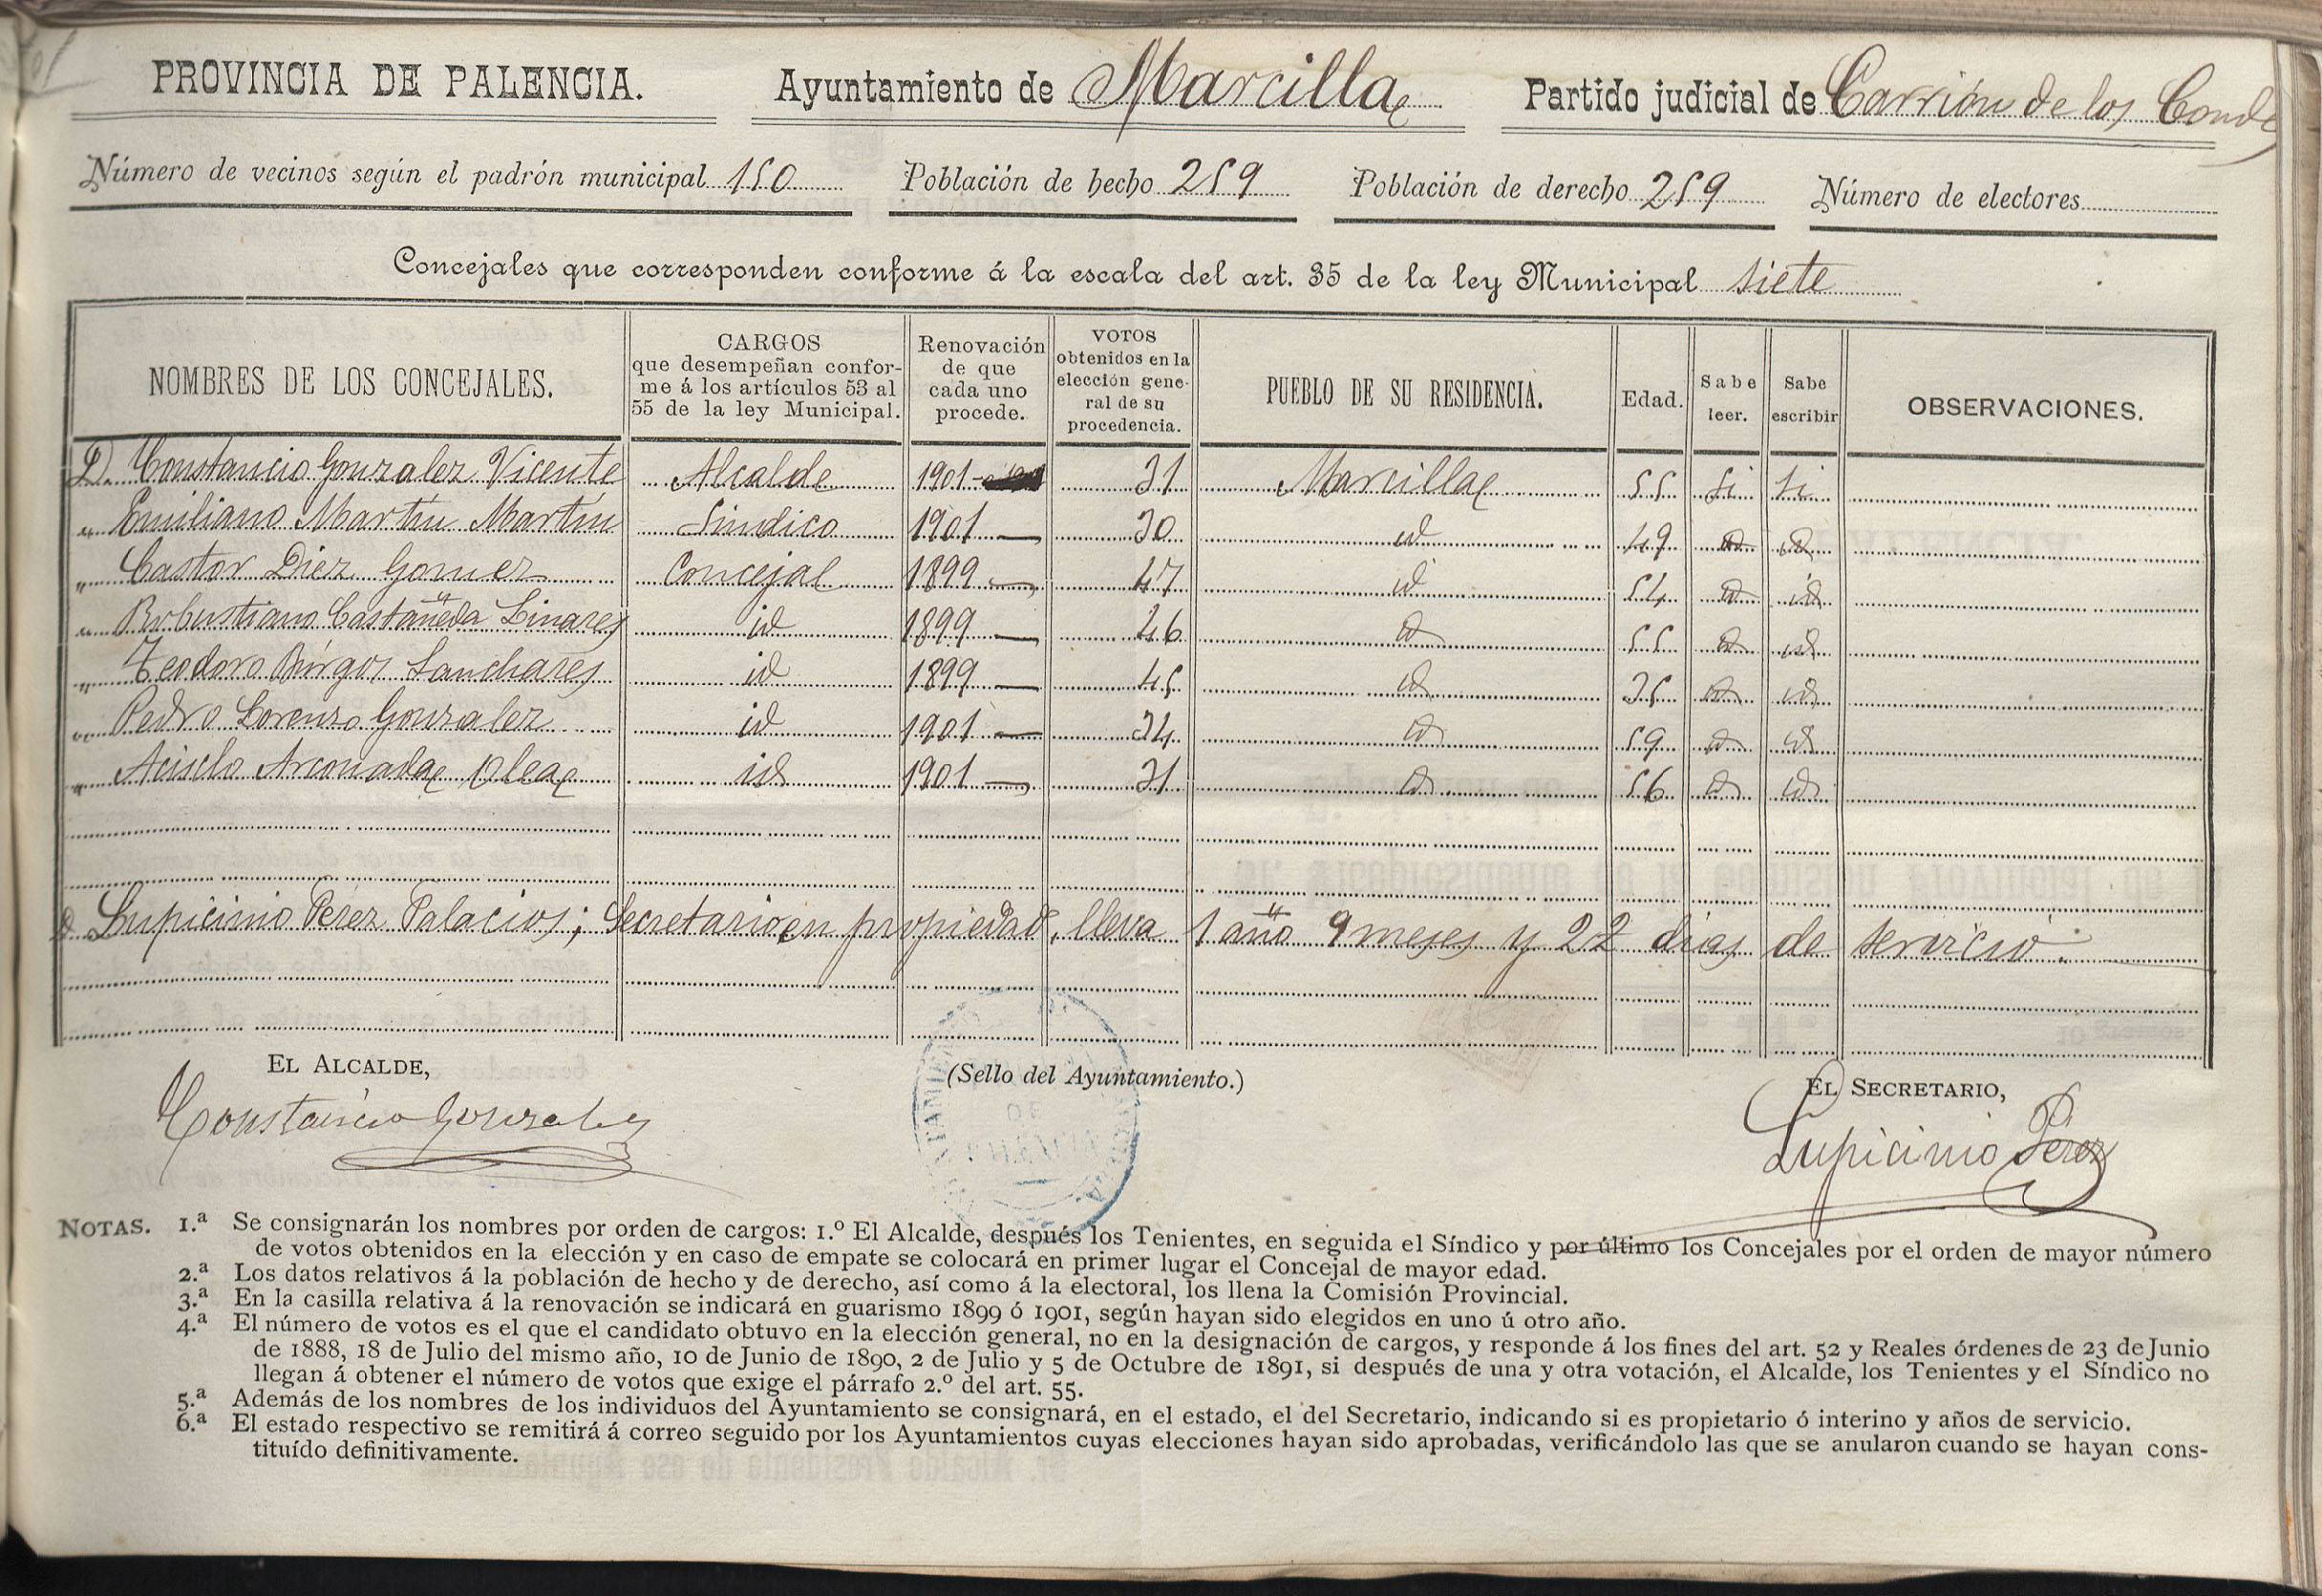 PROVINCIA DE PALENCIA. Ayuntamiento de Marcilla Partido judicial de Carrión de los Condes
Número de vecinos según el padrón municipal 150 Población de hecho 259 Población de derecho 259 Número de electores
Concejales que corresponden conforme á la escala del art. 35 de la ley Municipal siete
NOMBRES DE LOS CONCEJALES.
CARGOS
que desempeñan confor-
me á los artículos 53 al
55 de la ley Municipal.
Renovación
de que
cada uno
procede.
VOTOS
obtenidos en la
elección gene-
ral de su
procedencia.
PUEBLO DE SU RESIDENCIA.
Edad.
Sabe
leer.
Sabe
escribir
OBSERVACIONES.
D. Constancio Gonzalez Vicente Alcalde 1901 31 Marcilla 55 Si Si
" Emiliano Martín Martín Sindico 1901 — 30 id 49 id id
" Castor Diez Gomez Concejal 1899 — 47 id 54 id id
" Robustiano Castañeda Linares id 1899 — 46 id 55 id id
" Teodoro Búrgos Lanchares id 1899 — 45 id 35 id id
" Pedro Lorenzo Gonzalez id 1901 — 34 id 59 id id
" Acisclo Arconada Olea id 1901 — 31 id 56 id id
D. Lupicinio Pérez Palacios; Secretario en propiedad, lleva 1 año 9 meses y 22 días de servicio.
EL ALCALDE,
(Sello del Ayuntamiento.)
EL SECRETARIO,
Constancio Gonzalez
Lupicinio Pérez
NOTAS. 1.ª Se consignarán los nombres por orden de cargos: 1.º El Alcalde, después los Tenientes, en seguida el Síndico y por último los Concejales por el orden de mayor número
de votos obtenidos en la elección y en caso de empate se colocará en primer lugar el Concejal de mayor edad.
2.ª Los datos relativos á la población de hecho y de derecho, así como á la electoral, los llena la Comisión Provincial.
3.ª En la casilla relativa á la renovación se indicará en guarismo 1899 ó 1901, según hayan sido elegidos en uno ú otro año.
4.ª El número de votos es el que el candidato obtuvo en la elección general, no en la designación de cargos, y responde á los fines del art. 52 y Reales órdenes de 23 de Junio
de 1888, 18 de Julio del mismo año, 10 de Junio de 1890, 2 de Julio y 5 de Octubre de 1891, si después de una y otra votación, el Alcalde, los Tenientes y el Síndico no
llegan á obtener el número de votos que exige el párrafo 2.º del art. 55.
5.ª Además de los nombres de los individuos del Ayuntamiento se consignará, en el estado, el del Secretario, indicando si es propietario ó interino y años de servicio.
6.ª El estado respectivo se remitirá á correo seguido por los Ayuntamientos cuyas elecciones hayan sido aprobadas, verificándolo las que se anularon cuando se hayan cons-
tituído definitivamente.